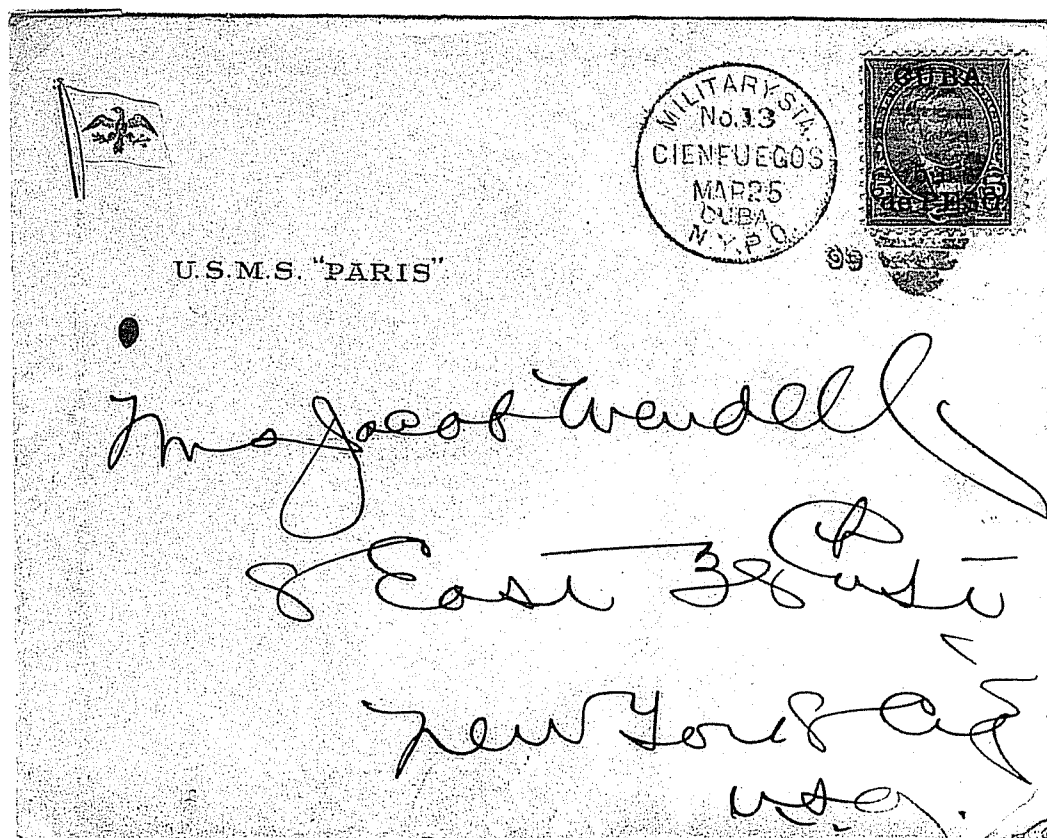 MILITARY STA.
No.13
CIENFUEGOS
MAR 25
CUBA,
N.Y.P.O.
99
CUBA
5 5
de PESO
U.S.M.S. "PARIS"
Mrs Jacob Wendell
8 East 38
New York City
U.S.A.